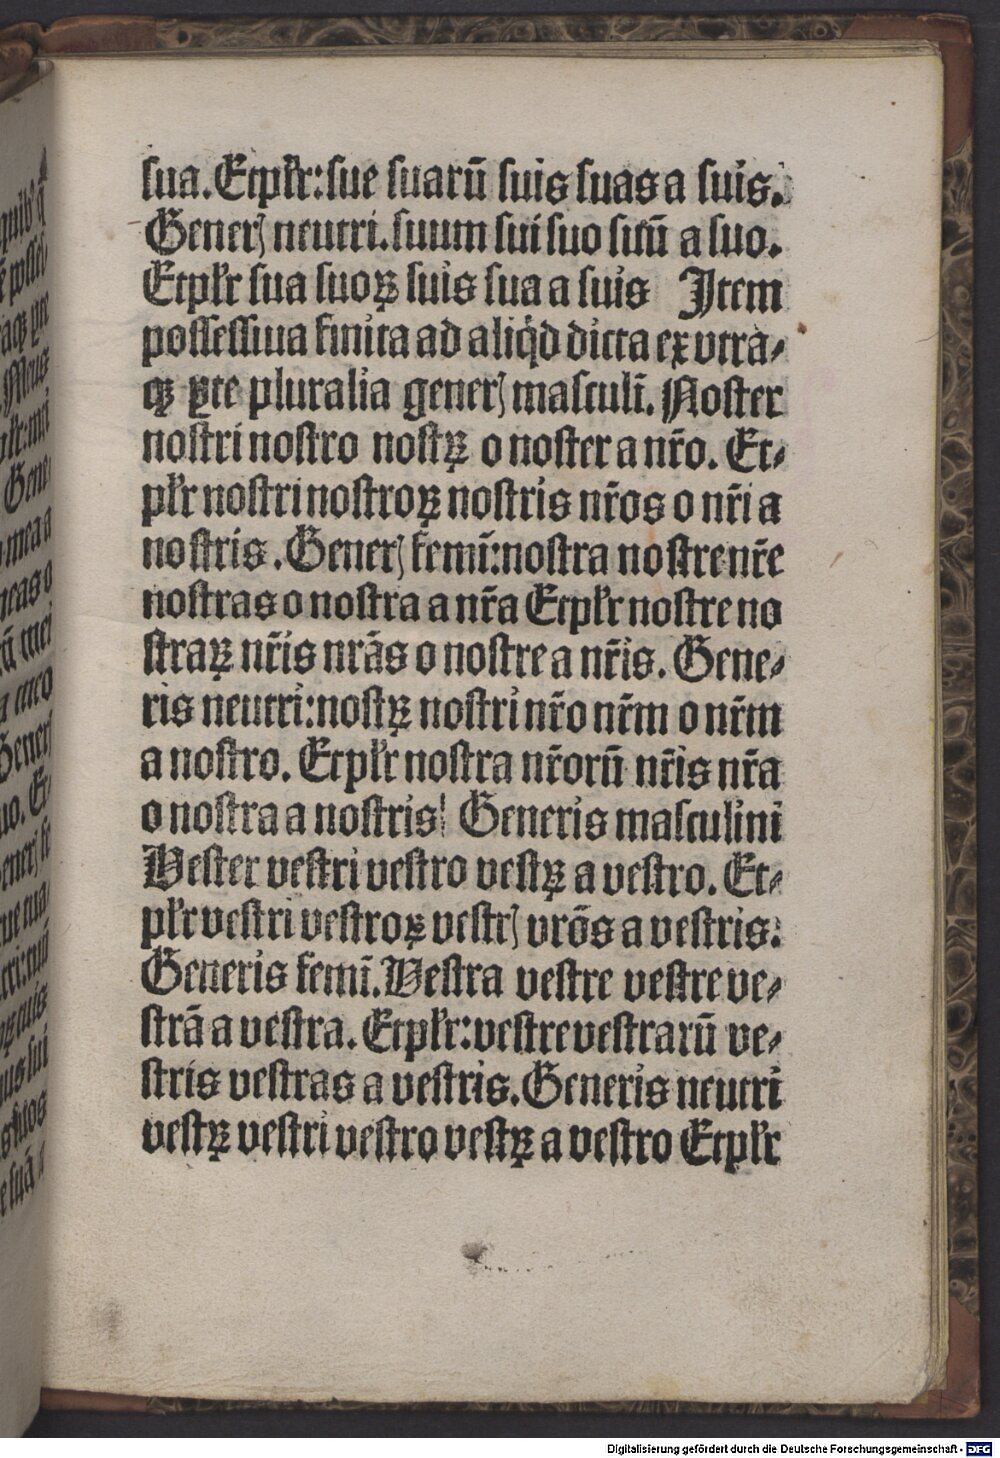 sua. Etpłr: sue suarū suis suas a suis.
Generꝭ neutri. suum sui suo suū a suo.
Etpłr sua suoꝝ suis sua a suis Item
possessiua finita ad aliq̇d dicta ex vtra⸗
qꝫ ꝑte pluralia generꝭ masculī. Noster
nostri nostro nostꝝ o noster a nr̄o. Et⸗
płr nostri nostroꝝ nostris nr̄os o nr̄i a
nostris. Generꝭ femī: nostra nostre nr̄e
nostras o nostra a nr̄a Etpłr nostre no
straꝝ nr̄is nrās o nostre a nr̄is. Gene⸗
ris neutri: nostꝝ nostri nr̄o nr̄m o nr̄m
a nostro. Etpłr nostra nr̄orū nr̄is nr̄a
o nostra a nostris Generis masculini
Vester vestri vestro vestꝝ a vestro. Et⸗
płr vestri vestroꝝ vestrꝭ vrōs a vestris.
Generis femī. Vestra vestre vestre ve⸗
strā a vestra. Etpłr: vestre vestrarū ve⸗
stris vestras a vestris. Generis neutri
vestꝝ vestri vestro vestꝝ a vestro Etpłr
Digitalisierung gefördert durch die Deutsche Forschungsgemeinschaft - DFG